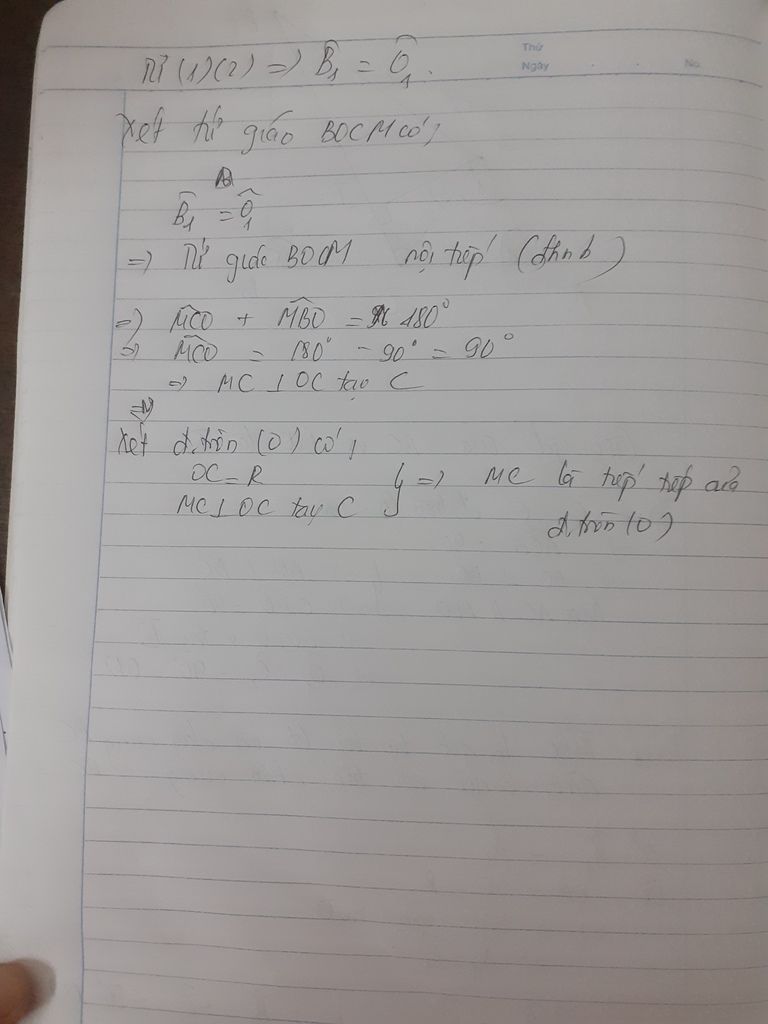 Thứ
Ngày . . No.
Từ (1)(2) => B̂₁ = Ô₁.
Xét tứ giáo BOCM có;
B̂₁ = Ô₁
=> Tứ giác BOCM nội tiếp (dhnb)
=> M̂CO + M̂BO = 180°
=> M̂CO = 180° - 90° = 90°
=> MC ⊥ OC tạo C
Xét đ.tròn (O) có;
OC = R
MC ⊥ OC tạy C } => MC là tiếp tiếp của
đ.tròn (O)